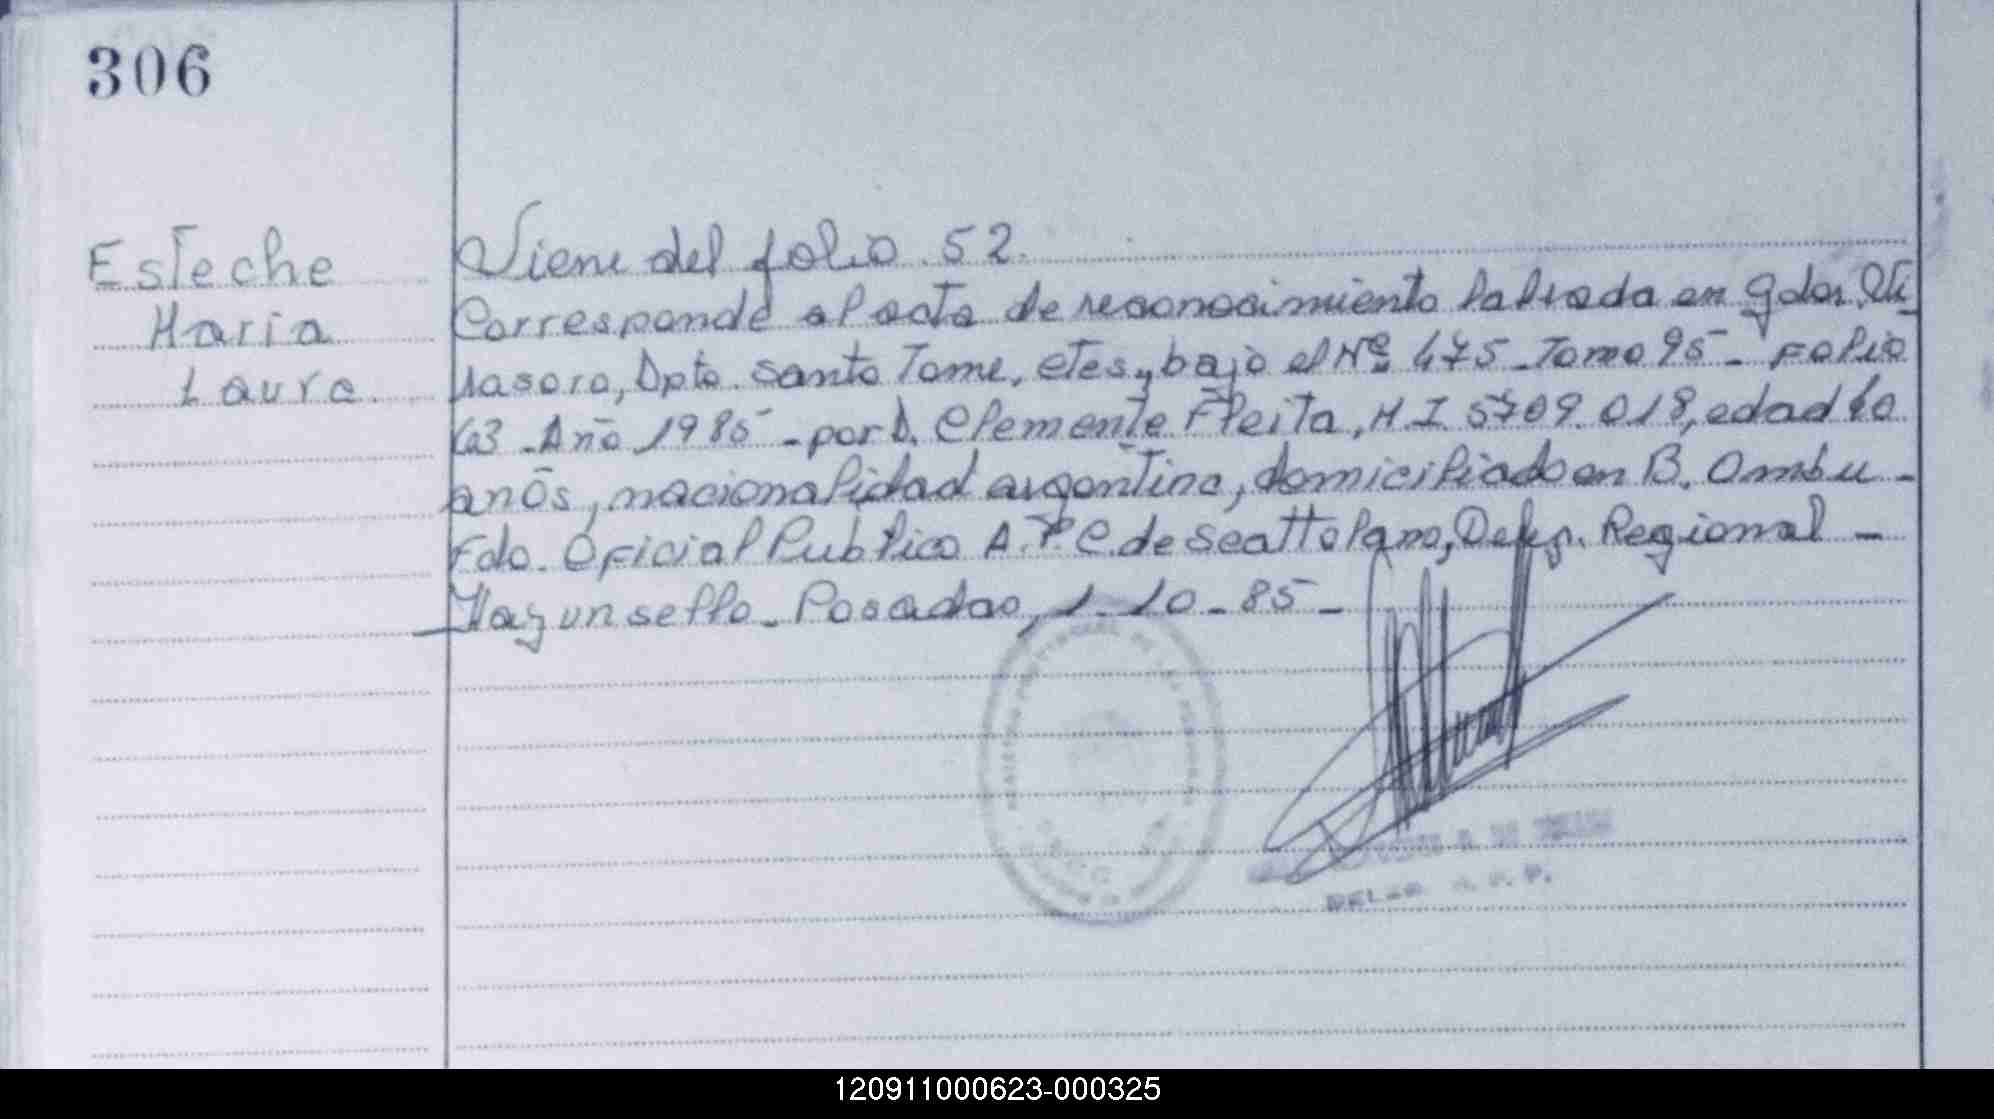 306
Esteche
Maria
Laura
Viene del folio 52.
Corresponde al acta de reconocimiento labrada en Gdor. Vi
lasoro, Dpto. Santo Tome, ctes, bajo el Nº 475 - Tomo 95 - Folio
63 - Año 1985 - por D. Clemente Fleita, M.I. 5709.018, edad
años, nacionalidad argentina, domiciliado en B. Ombu -
Fdo. Oficial Publico A.P.C. de Deleg. Regional -
Hay un sello - Posadas, 1-10-85-
120911000623-000325